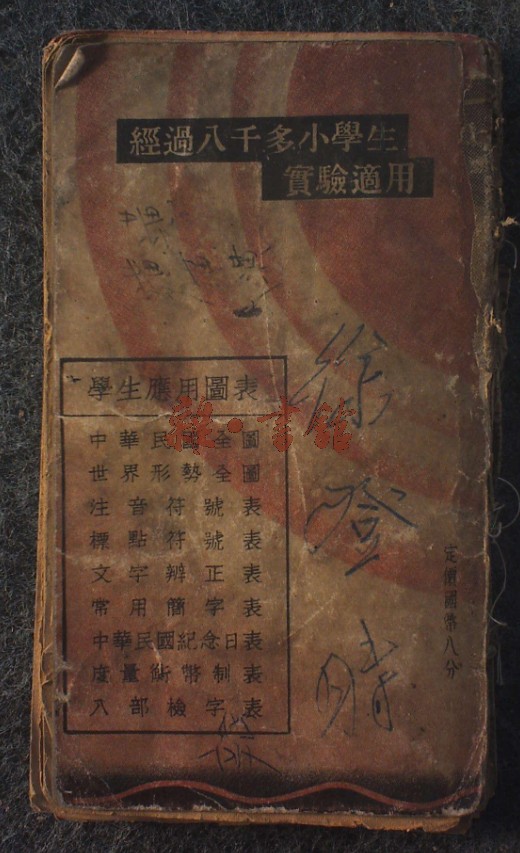 經過八千多小學生
實驗適用
學生應用圖表
中華民國全圖
世界形勢全圖
注音符號表
標點符號表
文字辨正表
常用簡字表
中華民國紀念日表
度量衡幣制表
入部檢字表
定價國幣八分
徐登晴
雜·書館